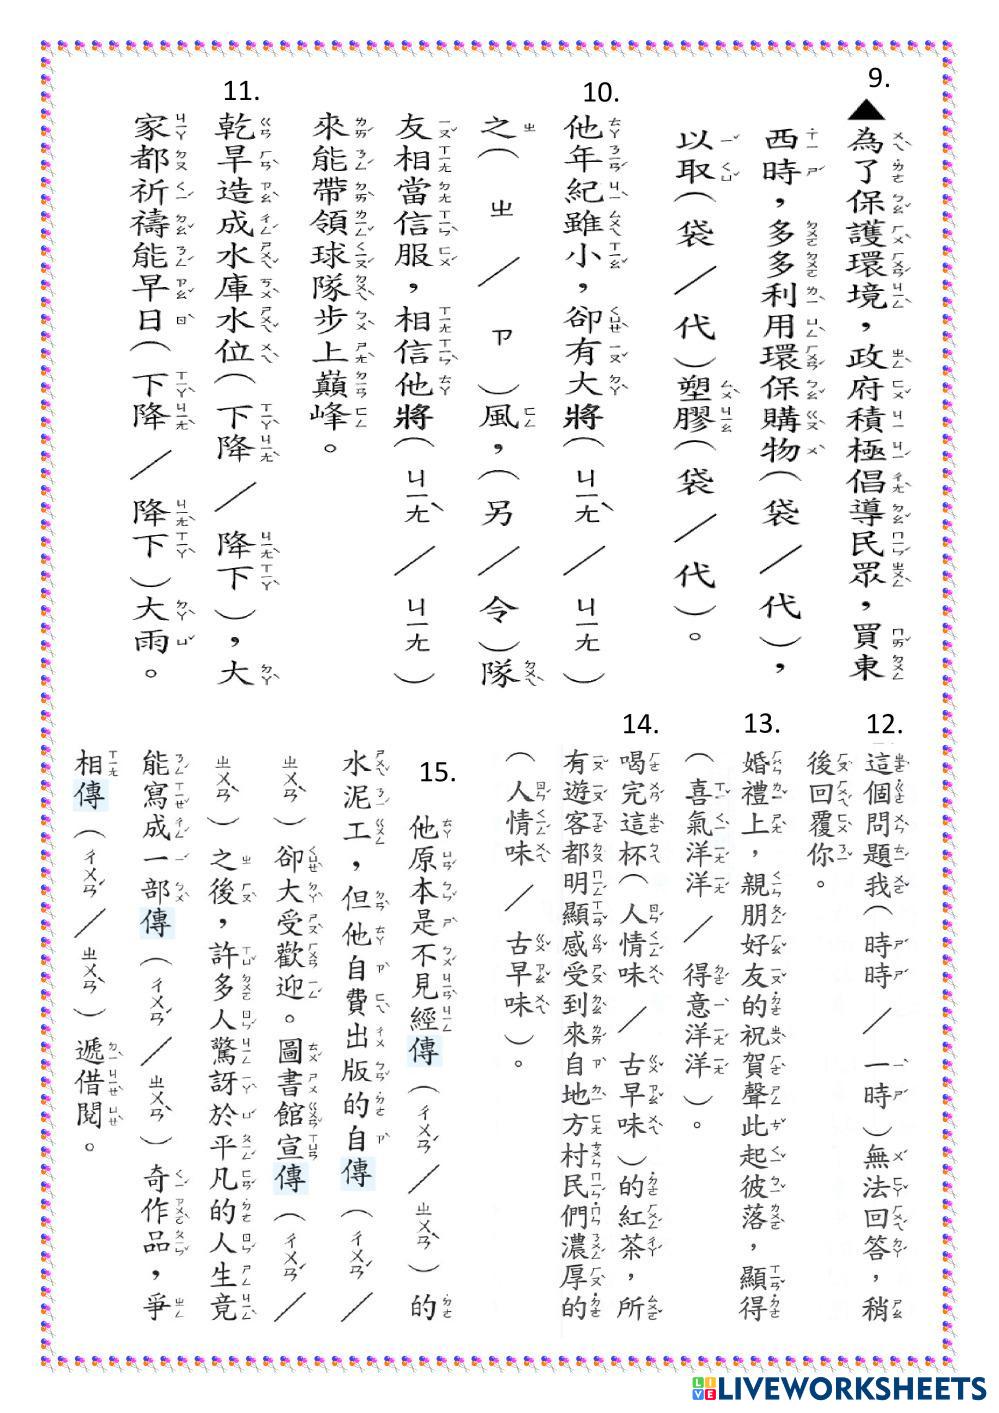 9.
▲為了保護環境，政府積極倡導民眾，買東
西時，多多利用環保購物（袋／代），
以取（袋／代）塑膠（袋／代）。
10.
他年紀雖小，卻有大將（ㄐㄧㄤˋ／ㄐㄧㄤ）
之（ㄓ／ㄗ）風，（另／令）隊
友相當信服，相信他將（ㄐㄧㄤˋ／ㄐㄧㄤ）
來能帶領球隊步上巔峰。
11.
乾旱造成水庫水位（下降／降下），大
家都祈禱能早日（下降／降下）大雨。
12.
這個問題我（時時／一時）無法回答，稍
後回覆你。
13.
婚禮上，親朋好友的祝賀聲此起彼落，顯得
（喜氣洋洋／得意洋洋）。
14.
喝完這杯（人情味／古早味）的紅茶，所
有遊客都明顯感受到來自地方村民們濃厚的
（人情味／古早味）。
15.
他原本是不見經傳（ㄔㄨㄢˊ／ㄓㄨㄢˋ）的
水泥工，但他自費出版的自傳（ㄔㄨㄢˊ／
ㄓㄨㄢˋ）卻大受歡迎。圖書館宣傳（ㄔㄨㄢˊ／
ㄓㄨㄢˋ）之後，許多人驚訝於平凡的人生竟
能寫成一部傳（ㄔㄨㄢˊ／ㄓㄨㄢˋ）奇作品，爭
相傳（ㄔㄨㄢˊ／ㄓㄨㄢˋ）遞借閱。
LIVEWORKSHEETS